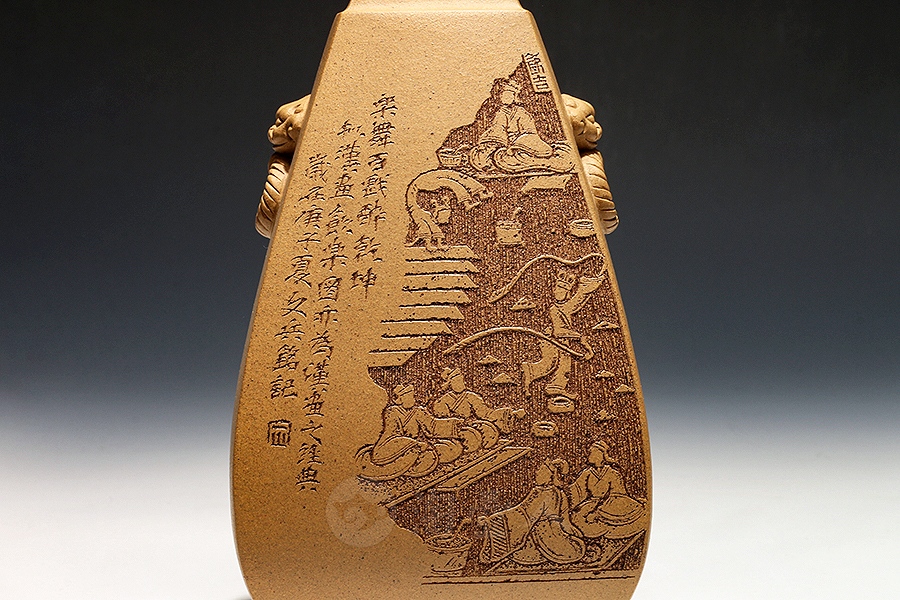 樂舞百戲醉乾坤
㠯漢畫飲樂圖亦為漢畫之經典
歲在庚子夏文兵銘記